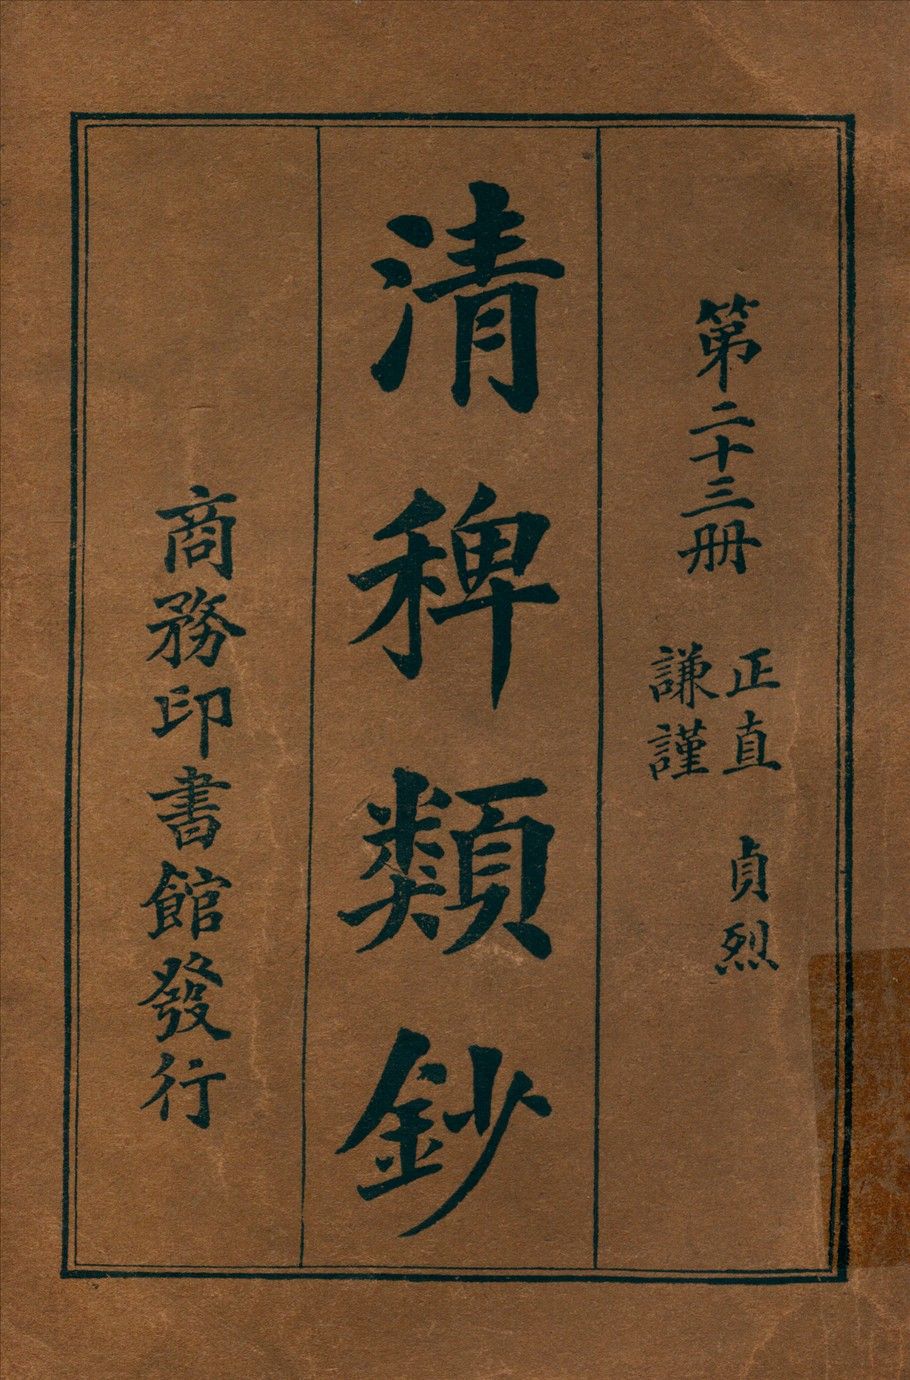 第二十三册
正直　貞烈
謙謹
清稗類鈔
商務印書館發行